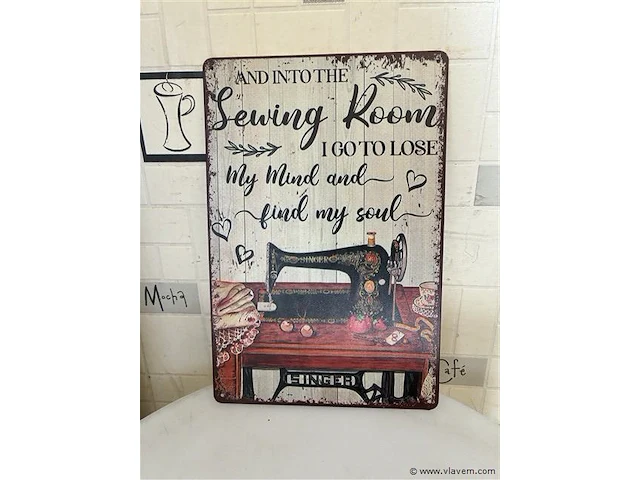 AND INTO THE
Sewing Room
I GO TO LOSE
My Mind and
find my soul
SINGER
SINGER
Mocha
Café
© www.vlavem.com